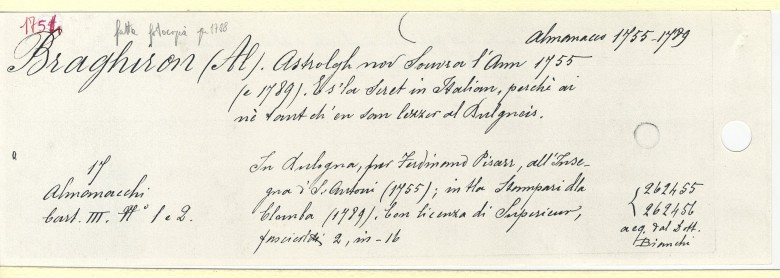 1751
fatta fotocopia per 1788
Almanacco 1755-1789
Braghiron (Al). Astrolgh nov Souvra l'Ann 1755
(e 1789). E s'la scret in Italian, perchè ai
n'è tant ch'en san lezzer al Bulgneis.
17
Almanacchi
Cart. III. No 1 e 2.
In Bulogna, per Ferdinand Pisarr, all'Inse-
gna d' S. Antoni (1755); in tla Stampari dla
Clomba (1789). Con licenza di Superieur,
fascicoli 2, in-16
262455
262456
acq. dal Dott.
Bianchi